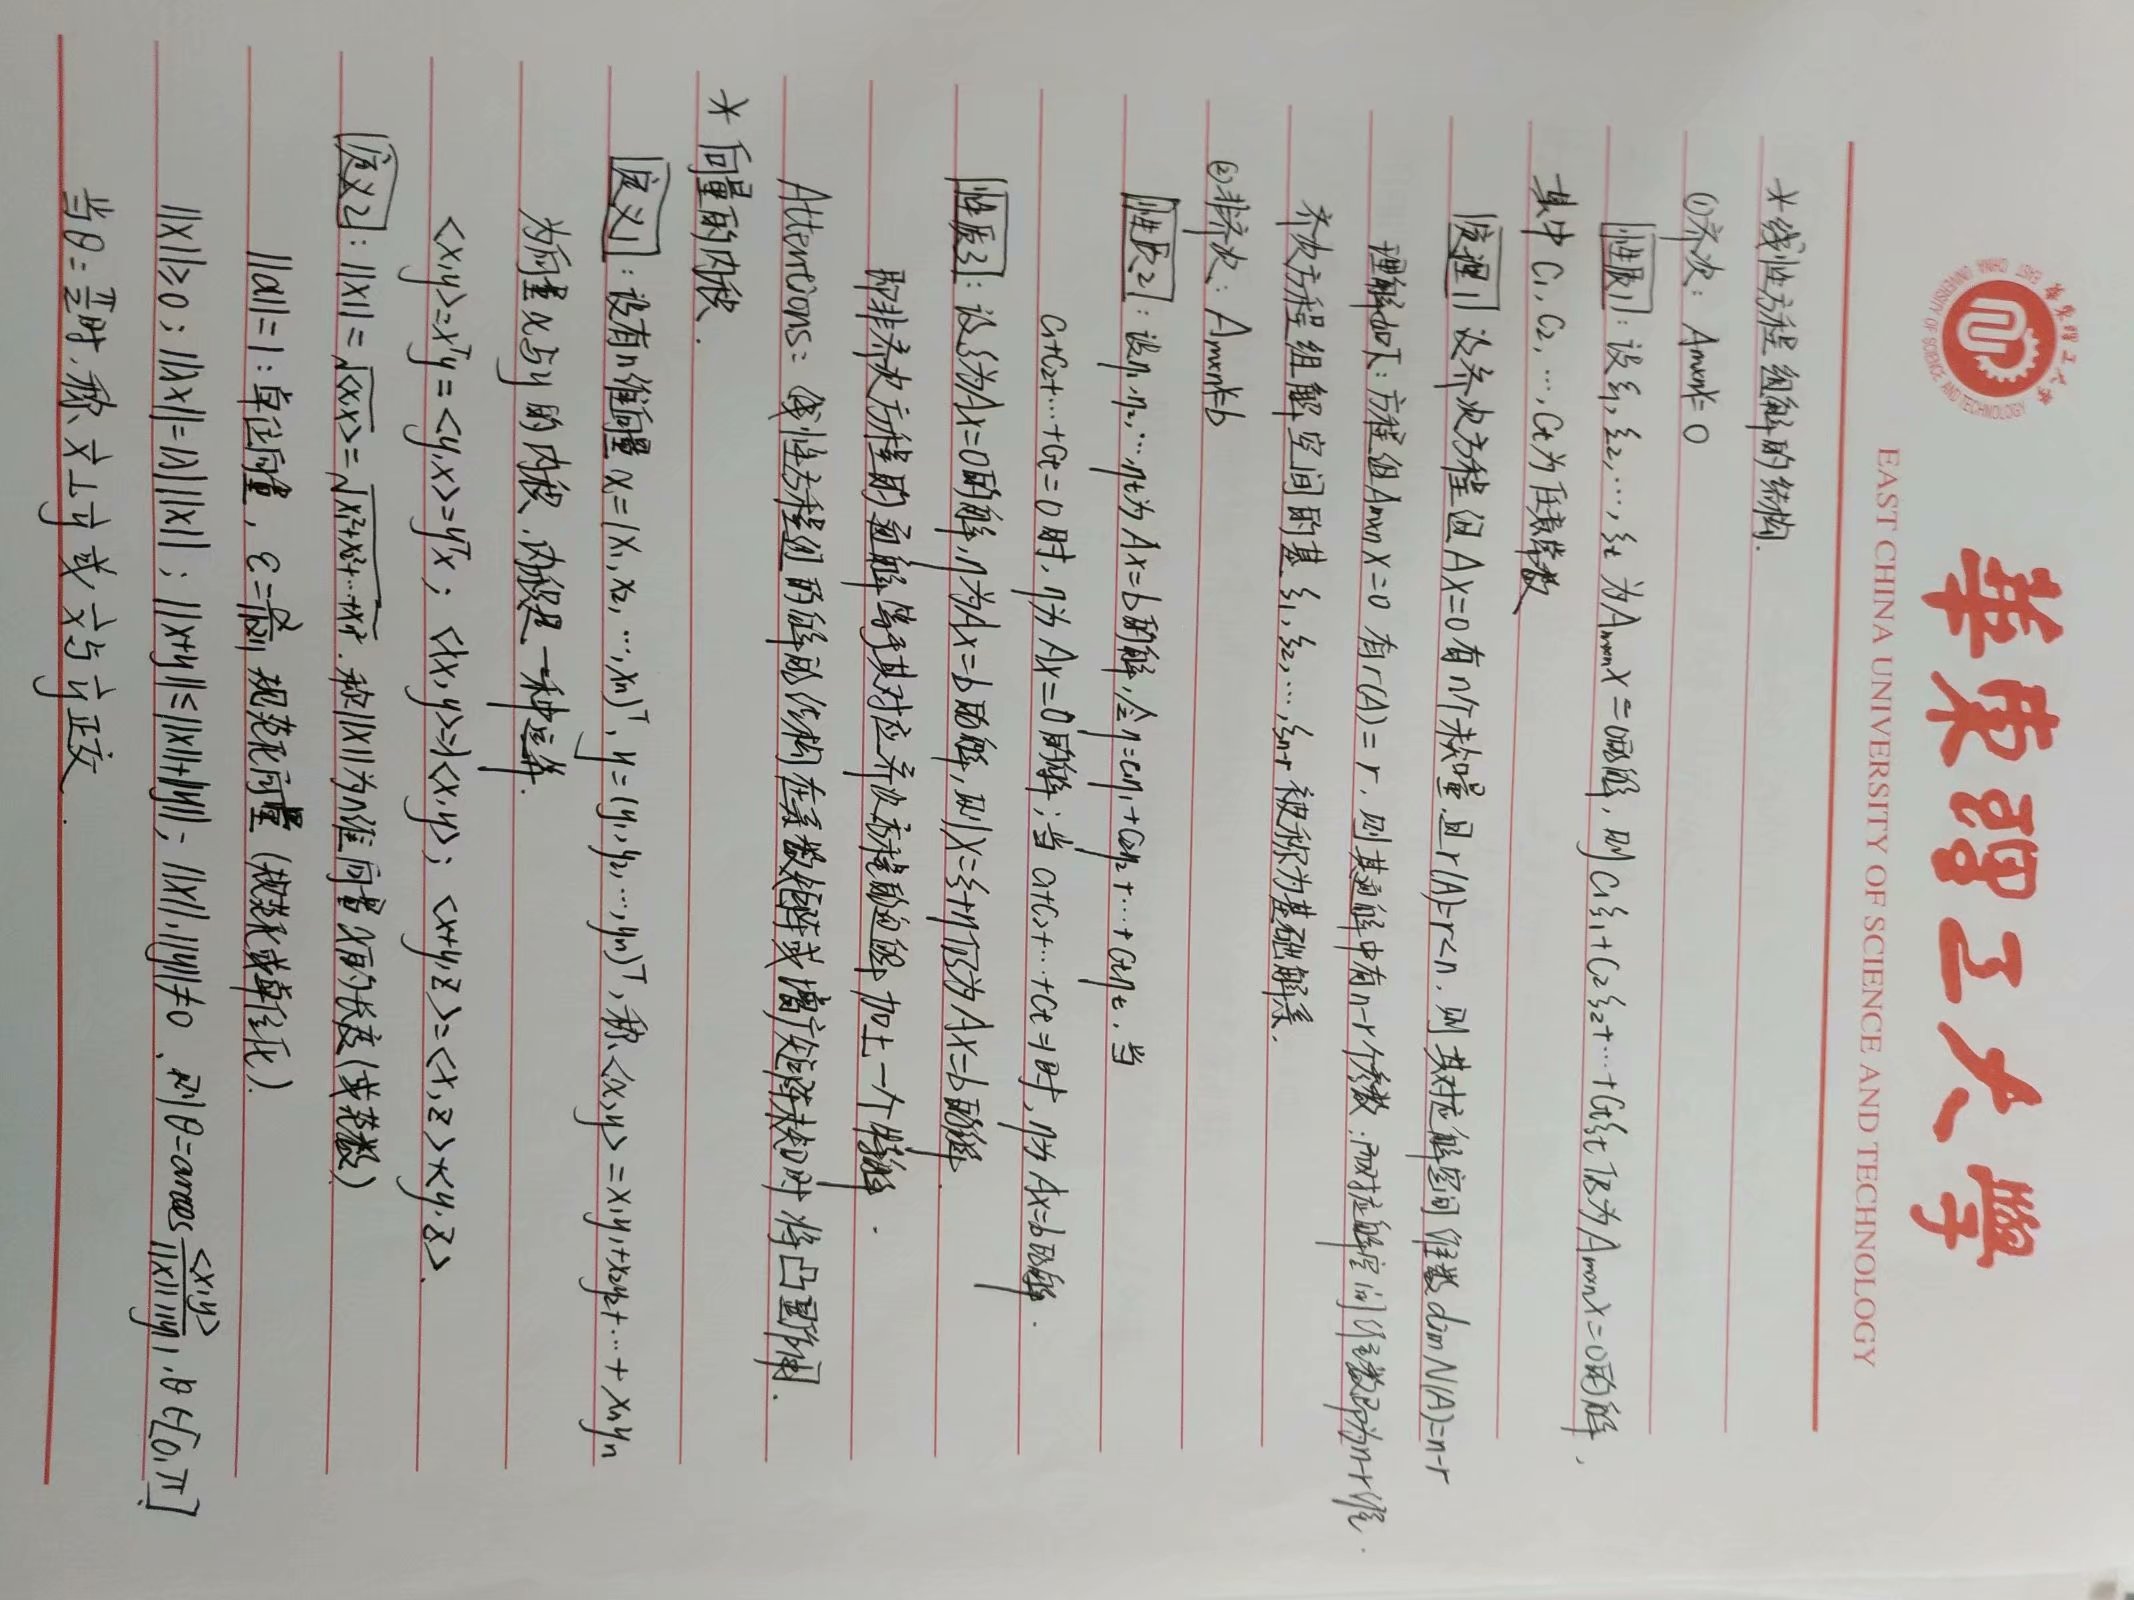 華東理工大學
EAST CHINA UNIVERSITY OF SCIENCE AND TECHNOLOGY
*线性方程组解的结构.
①齐次: Aₘₓₙx=0
性质1: 设ξ₁, ξ₂, …, ξₜ 为AₘₓₙX=0的解, 则C₁ξ₁+C₂ξ₂+…+Cₜξₜ 仍为AₘₓₙX=0的解,
其中 C₁, C₂, …, Cₜ为任意常数
定理1 设齐次方程组 AX=0有n个未知量,且r(A)=r<n, 则其对应解空间维数dimN(A)=n-r
理解如下: 方程组AₘₓₙX=0 有r(A)=r, 则其通解中有n-r个参数, 而对应解空间维数即为n-r维.
齐次方程组解空间的基 ξ₁, ξ₂, …, ξₙ₋ᵣ 被称为基础解系.
②非齐次: Aₘₓₙx=b
性质2: 设η₁, η₂, …, ηₜ为 Ax=b的解, 令η=c₁η₁+C₂η₂+…+Cₜηₜ, 当
C₁+C₂+…+Cₜ=0时, η为 Ax=0的解; 当 C₁+C₂+…+Cₜ=1时, η为 Ax=b的解.
性质3: 设ξ为Ax=0的解, η为Ax=b的解, 则X=ξ+η仍为Ax=b的解.
即非齐次方程的通解等于其对应齐次方程的通解加上一个特解.
Attentions: 线性方程组的解的结构在系数矩阵或增广矩阵未知时将凸显作用.
* 向量的内积.
定义1: 设有n维向量 x=(x₁, x₂, …, xₙ)ᵀ, y=(y₁, y₂, …, yₙ)ᵀ, 称<x, y> = x₁y₁+x₂y₂+…+xₙyₙ
为向量x与y 的内积. 内积是一种运算.
<x,y>=xᵀy = <y,x>=yᵀx; <λx, y>=λ<x,y>; <x+y, z>=<x, z>+<y, z>.
定义2: ||x||=√<x,x>=√x₁²+x₂²+…+xₙ². 称||x||为n维向量x的长度(或范数)
||α||=1: 单位向量, ε=α/||α|| 规范化向量 (规范化或单位化).
||x||≥0; ||λx||=|λ|||x||; ||x+y||≤||x||+||y||; ||x||,||y||≠0, 则θ=arccos <x,y>/||x||·||y||, θ∈[0,π].
当θ=π/2时, 称 x⊥y 或 x与y正交.